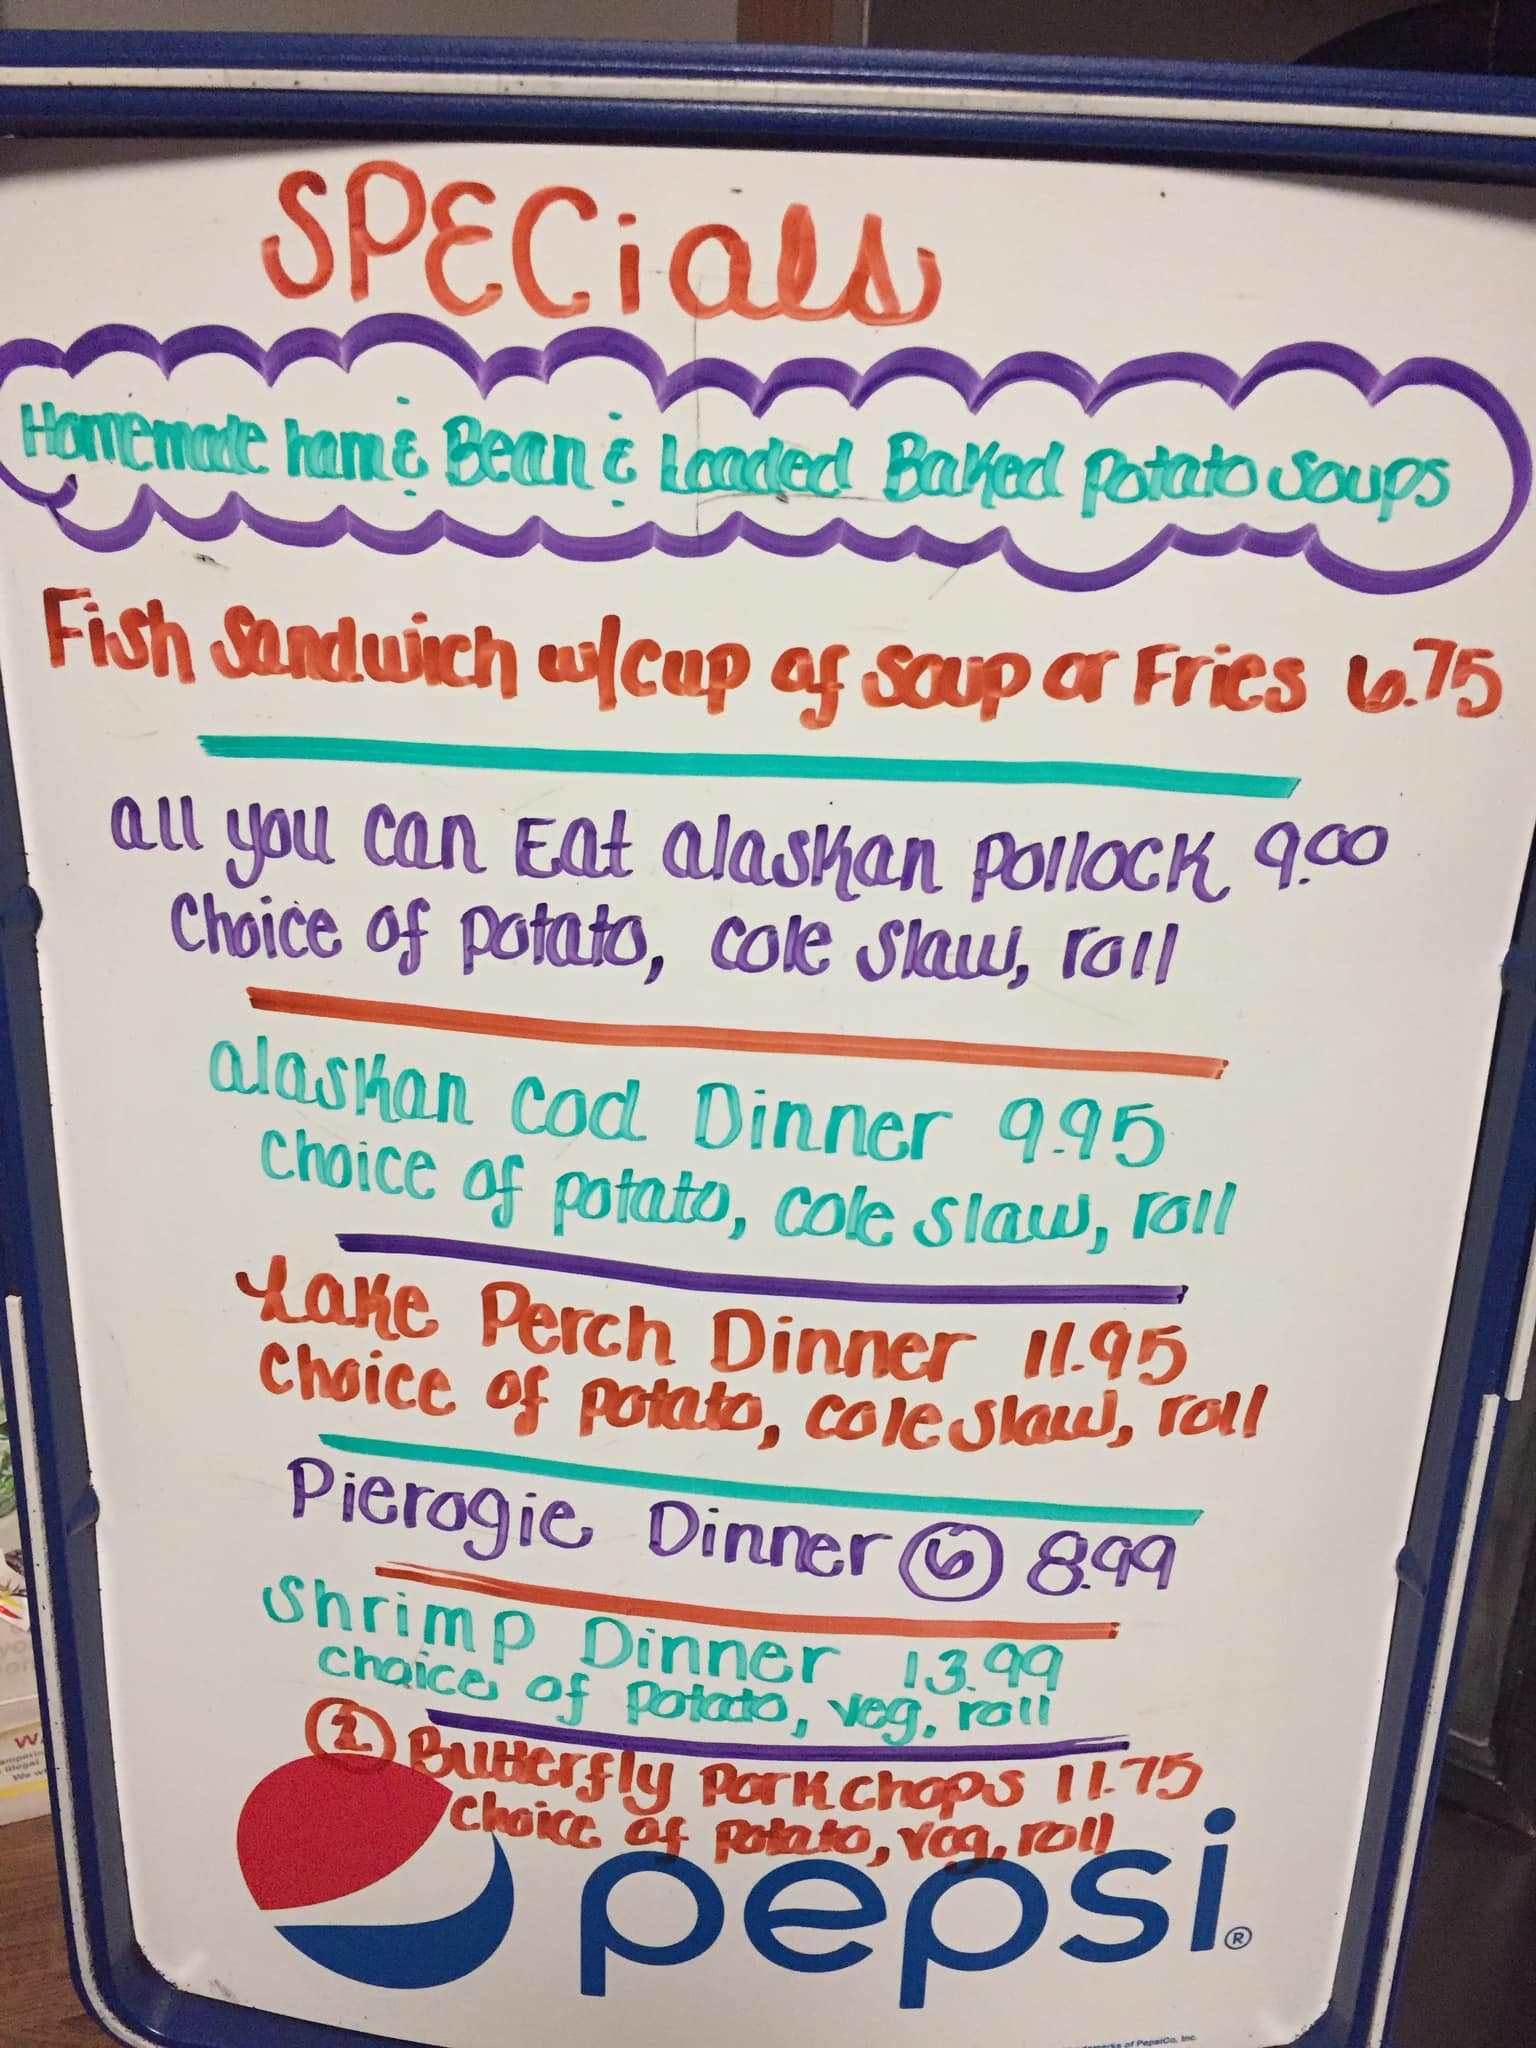 SPECials
Homemade ham & Bean & Loaded Baked Potato Soups
Fish Sandwich w/cup of soup or Fries 6.75
all you can Eat alaskan Pollock 9.00
Choice of potato, cole slaw, roll
alaskan Cod Dinner 9.95
Choice of potato, cole slaw, roll
Lake Perch Dinner 11.95
Choice of potato, cole slaw, roll
Pierogie Dinner 6 8.99
Shrimp Dinner 13.99
choice of potato, veg, roll
2 Butterfly Pork chops 11.75
Choice of potato, veg, roll
pepsi®
of PepsiCo, Inc.